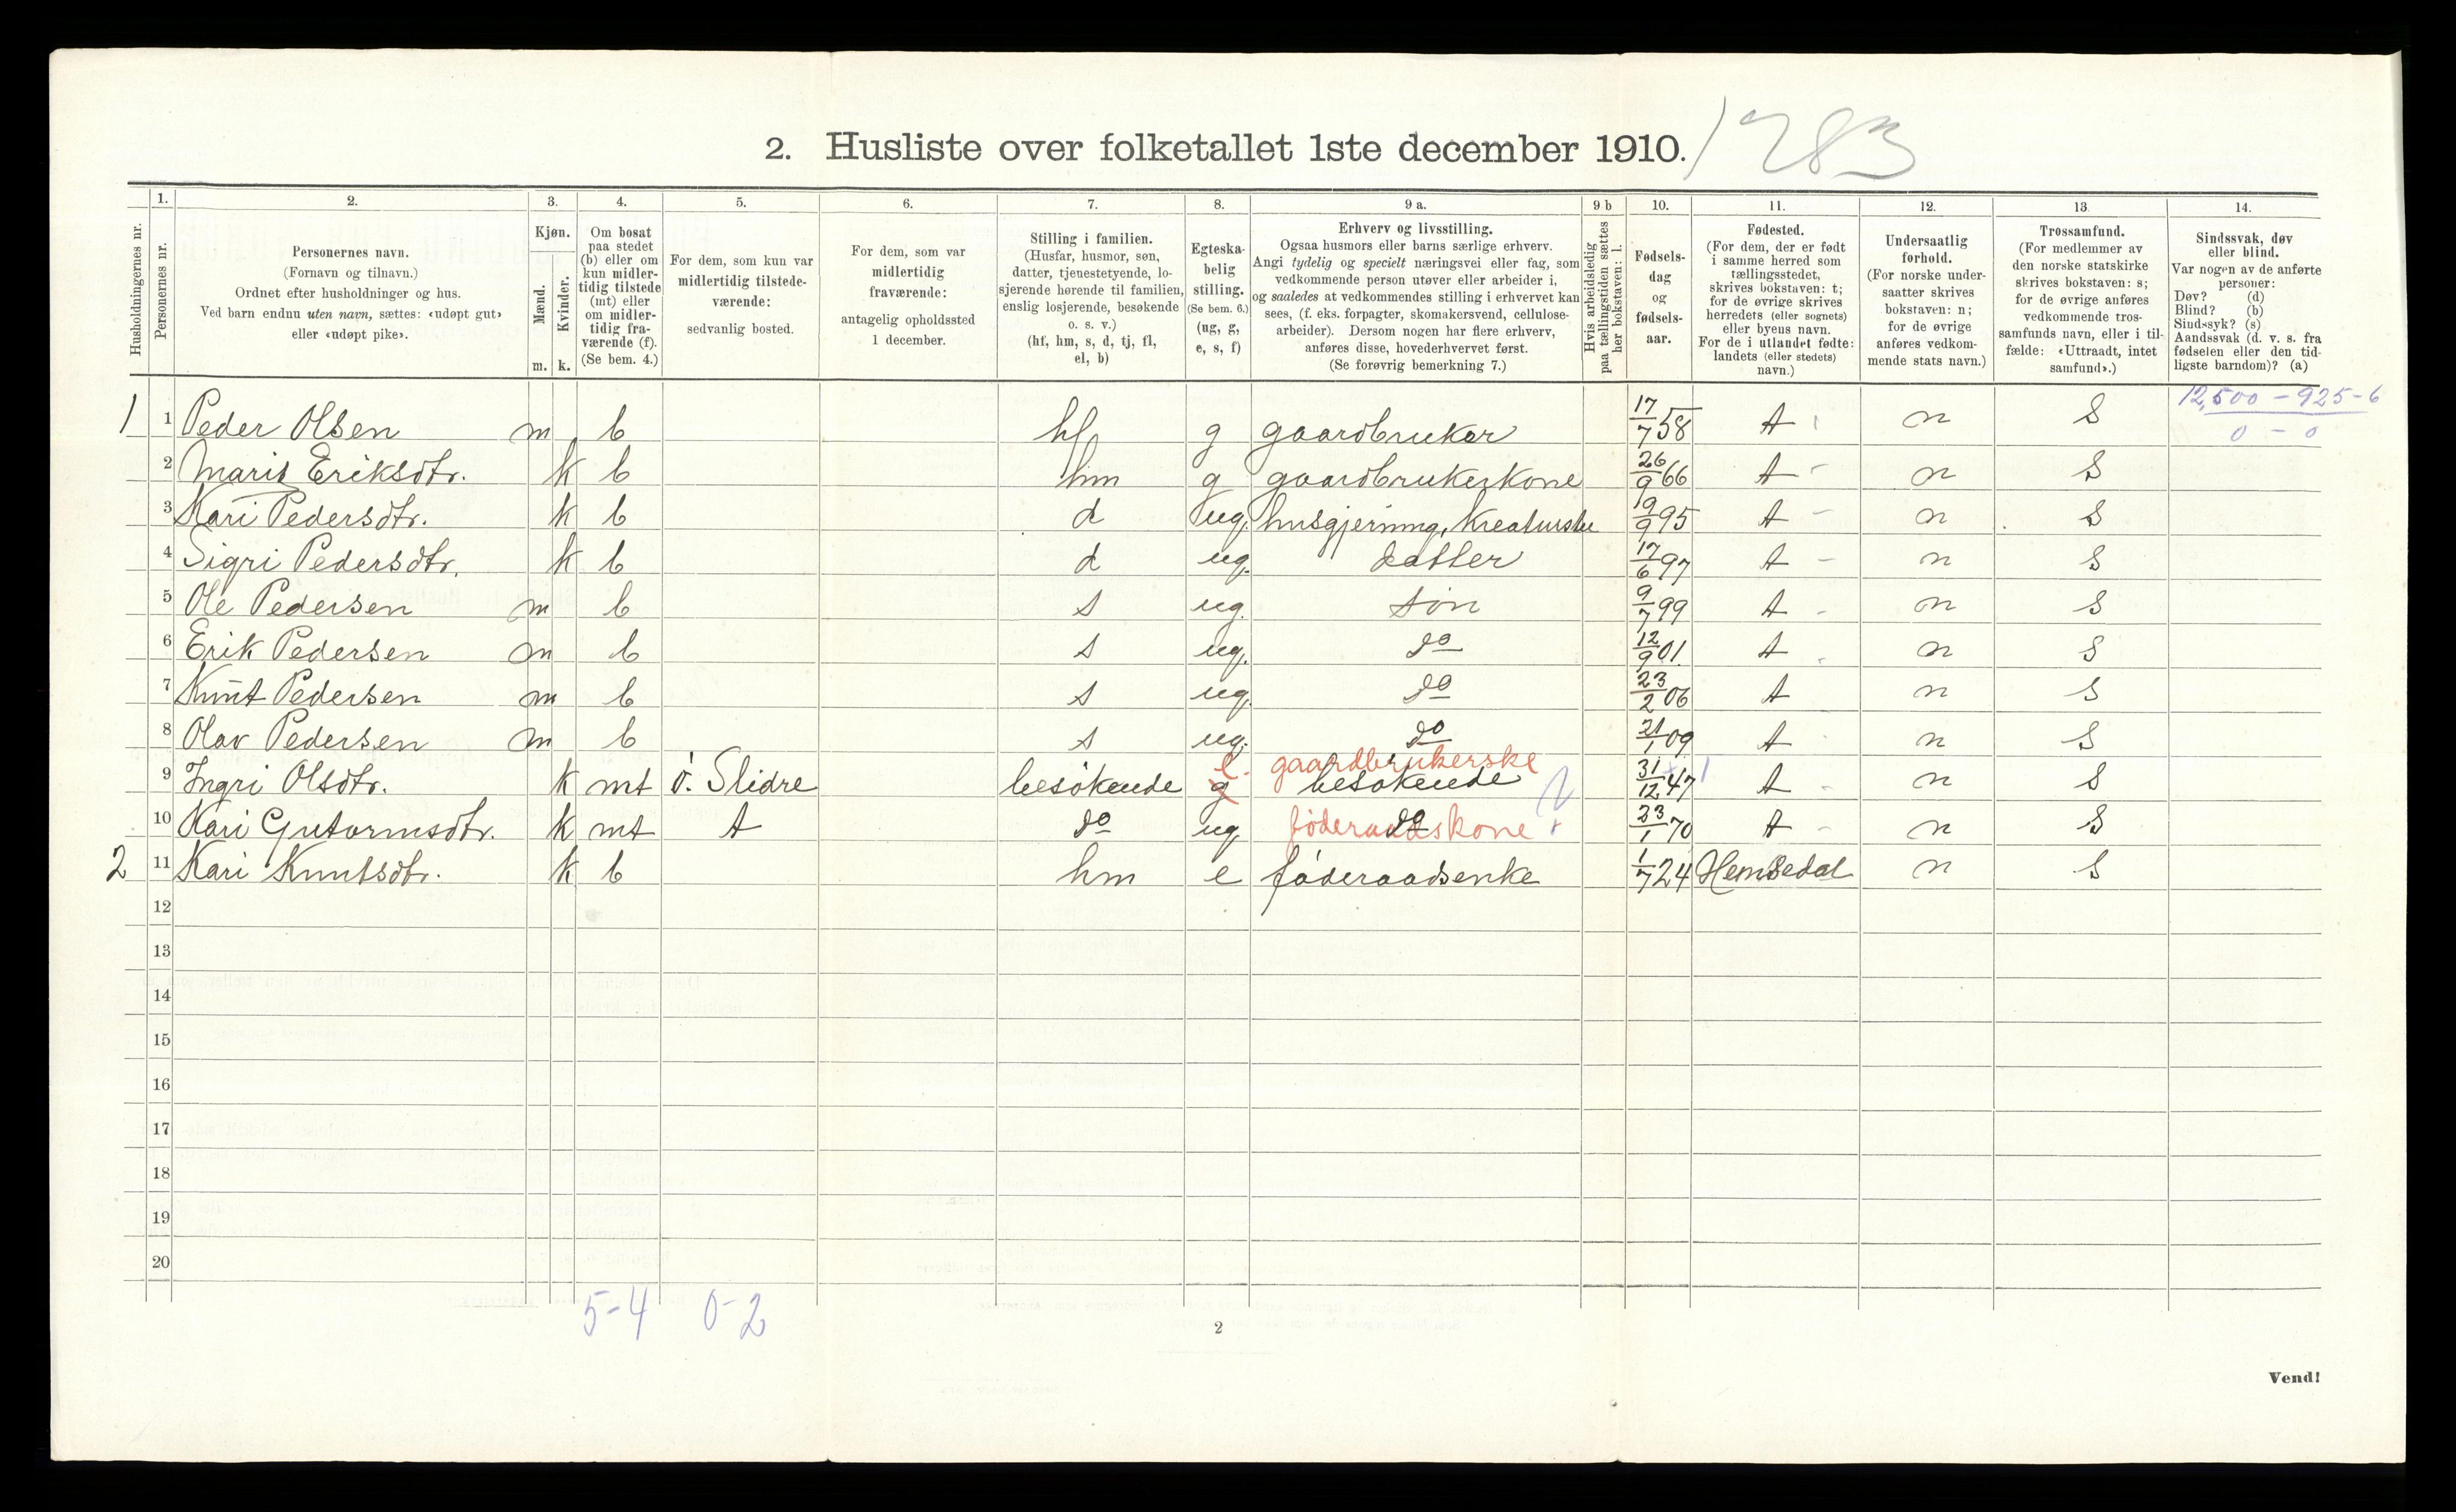 2. Husliste over folketallet 1ste december 1910. 1283
Husholdningernes nr.
1.
Personernes nr.
2.
Personernes navn.
(Fornavn og tilnavn.)
Ordnet efter husholdninger og hus.
Ved barn endnu uten navn, sættes: «udøpt gut»
eller «udøpt pike».
3.
Kjøn.
Mænd.
Kvinder.
m. k.
4.
Om bosat
paa stedet
(b) eller om
kun midler-
tidig tilstede
(mt) eller
om midler-
tidig fra-
værende (f).
(Se bem. 4.)
5.
For dem, som kun var
midlertidig tilstede-
værende:
sedvanlig bosted.
6.
For dem, som var
midlertidig
fraværende:
antagelig opholdssted
1 december.
7.
Stilling i familien.
(Husfar, husmor, søn,
datter, tjenestetyende, lo-
sjerende hørende til familien,
enslig losjerende, besøkende
o. s. v.)
(hf, hm, s, d, tj, fl,
el, b)
8.
Egteska-
belig
stilling.
(Se bem. 6.)
(ug, g,
e, s, f)
9 a.
Erhverv og livsstilling.
Ogsaa husmors eller barns særlige erhverv.
Angi tydelig og specielt næringsvei eller fag, som
vedkommende person utøver eller arbeider i,
og saaledes at vedkommendes stilling i erhvervet kan
sees, (f. eks. forpagter, skomakersvend, cellulose-
arbeider). Dersom nogen har flere erhverv,
anføres disse, hovederhvervet først.
(Se forøvrig bemerkning 7.)
9 b
Hvis arbeidsledig
paa tællingstiden sættes
her bokstaven: l.
10.
Fødsels-
dag
og
fødsels-
aar.
11.
Fødested.
(For dem, der er født
i samme herred som
tællingsstedet,
skrives bokstaven: t;
for de øvrige skrives
herredets (eller sognets)
eller byens navn.
For de i utlandet fødte:
landets (eller stedets)
navn.)
12.
Undersaatlig
forhold.
(For norske under-
saatter skrives
bokstaven: n;
for de øvrige
anføres vedkom-
mende stats navn.)
13.
Trossamfund.
(For medlemmer av
den norske statskirke
skrives bokstaven: s;
for de øvrige anføres
vedkommende tros-
samfunds navn, eller i til-
fælde: «Uttraadt, intet
samfund».)
14.
Sindssvak, døv
eller blind.
Var nogen av de anførte
personer:
Døv? (d)
Blind? (b)
Sindssyk? (s)
Aandssvak (d. v. s. fra
fødselen eller den tid-
ligste barndom)? (a)
12,500 - 925-6
0 - 0
1 1 Peder Olsen m b hf g gaardbruker 17/7 58 t n S
2 Marit Eriksdtr. k b hm g gaardbrukerkone 26/9 66 t n S
3 Kari Pedersdtr. k b d ug. husgjerning, kreaturstel 19/9 95 t n S
4 Sigri Pedersdtr. k b d ug. datter 17/6 97 t n S
5 Ole Pedersen m b s ug. søn 9/7 99 t n S
6 Erik Pedersen m b s ug. do 12/9 01. t n S
7 Knut Pedersen m b s ug. do 23/2 06 t n S
8 Olav Pedersen m b s ug. do 21/1 09 t n S
e. gaardbrukerske
9 Ingri Olsdtr. k mt ö. Slidre besökende g besökende 31/12 47 t n S
10 Kari Gutormsdtr. k mt t do ug. do føderaadskone 23/1 70 t n S
2 11 Kari Knutsdtr. k b hm e føderaadsenke 1/7 24 Hemsedal n S
12
13
14
15
16
17
18
19
20
5-4 0-2
2
Vend!